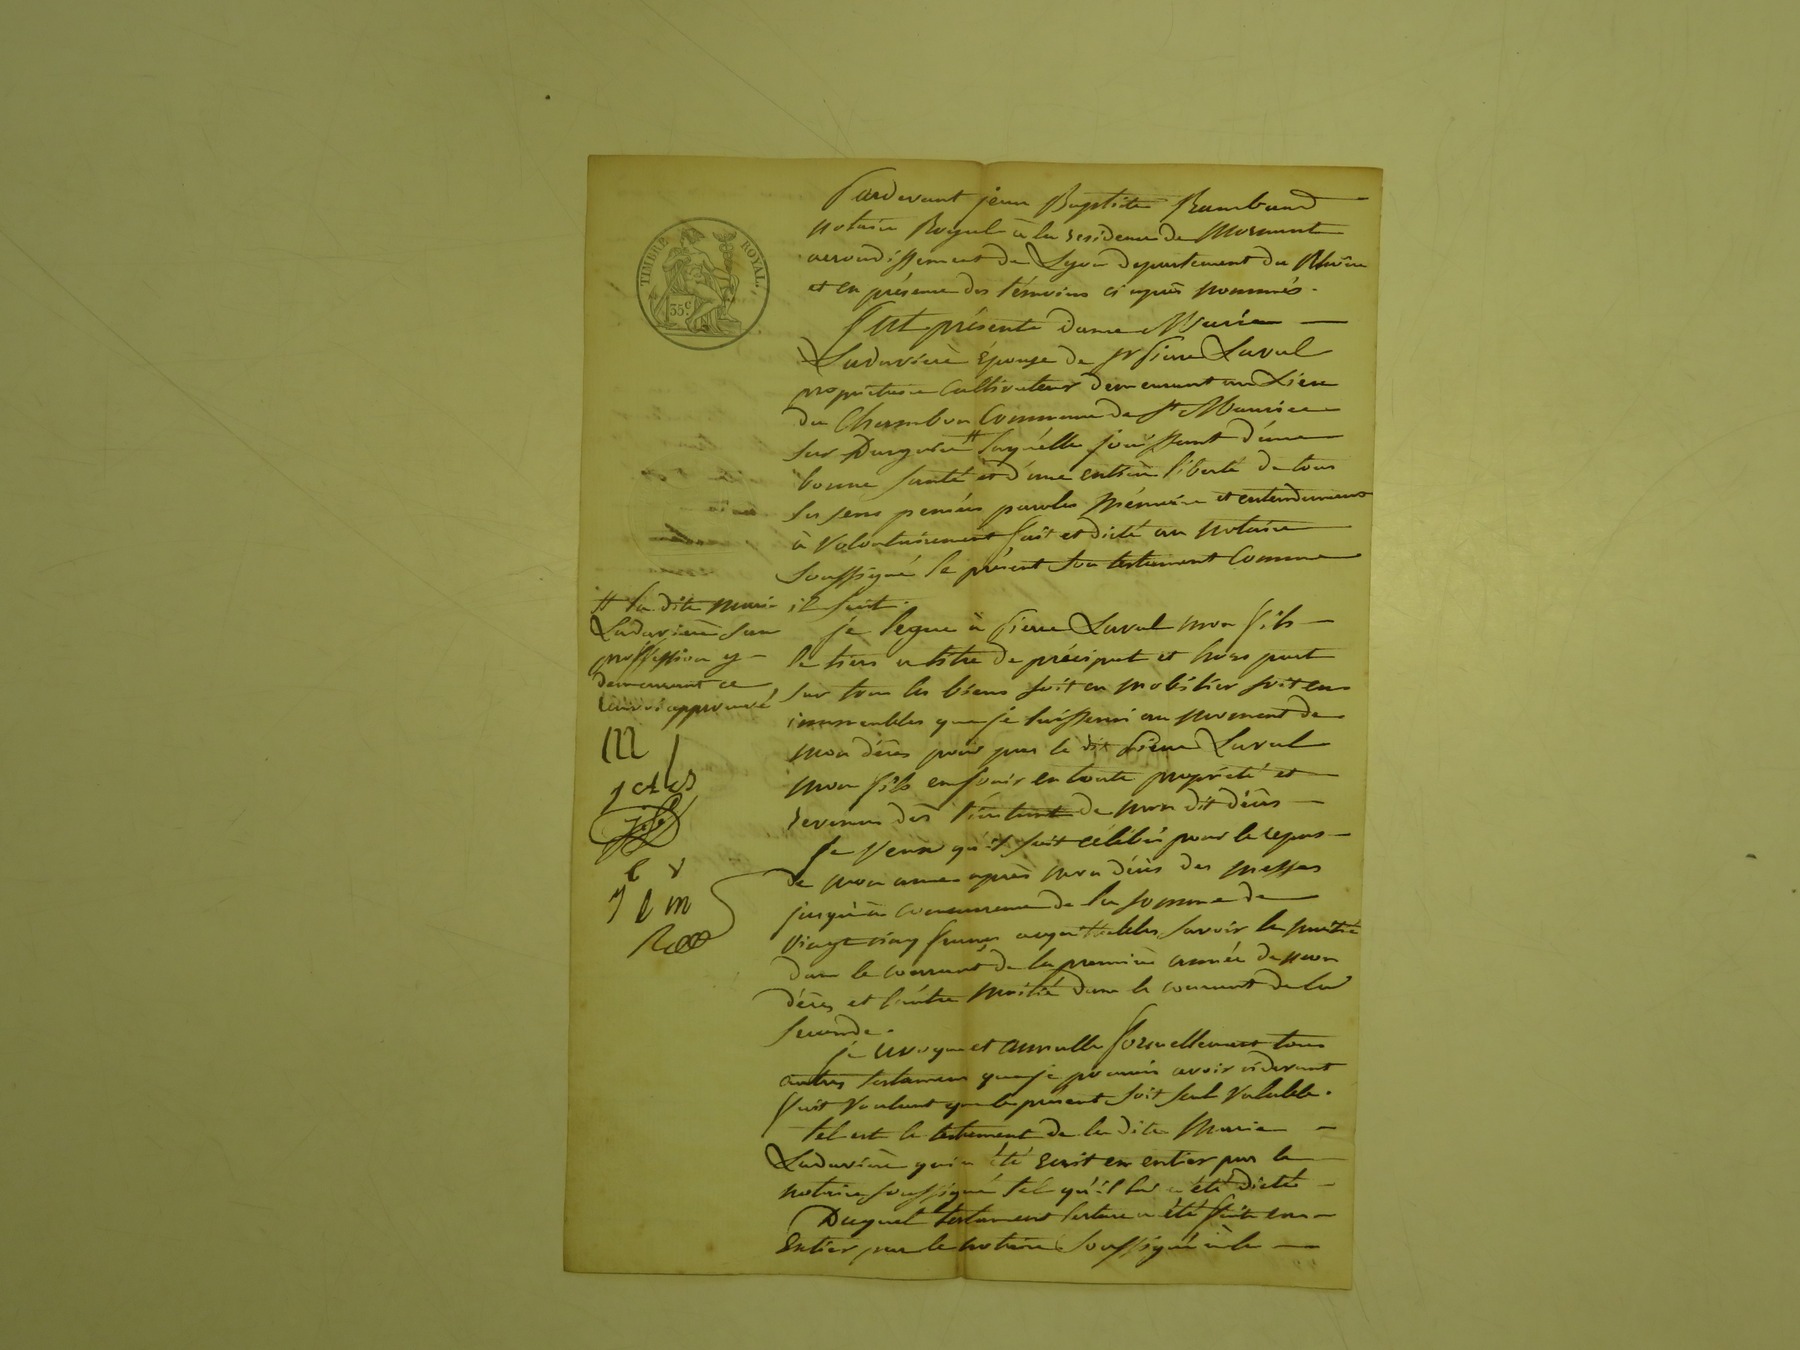 TIMBRE ROYAL.
35c
Pardevant jean Baptiste Rambaud
notaire Royal à la residence de Mornant
arrondissement de Lyon departement du Rhône
et en présence des témoins ci après nommés.
fut présente dame Marie
Ladavière épouse de Sr Pierre Laval
propriétaire Cultivateur demeurant au Lieu
du Chambon Commune de St Maurice
sur Dargoire # laquelle jouissant d'une
bonne santé et d'une entière liberté de tous
ses sens pensées paroles Mémoire et entendement
à volontairement fait et dicté au notaire
soussigné le présent son testament Comme
il suit.
# la dite marie
Ladavière san
proffession y
demeurant ce
renvoi approuvé
je legue à Pierre Laval mon fils
le tiers a titre de préciput et hors part
sur tous les biens soit en mobilier soit en
immeubles que je laisserai au moment de
mon décès pour par le dit Pierre Laval
mon fils en jouir en toute propriété et
revenus dès l'instant de mon dit décès
Je veux qu'il soit célébré pour le repos
de mon ame après mon décès des messes
jusqu'à concurrence de la somme de
vingt cinq francs acquittables, savoir la moitié
dans le courrant de la première année de mon
décès et l'autre moitié dans le courant de la
seconde.
je revoque et annulle formellement tous
autres testamens que je pourrais avoir ci devant
fait voulant que le présent soit seul valable.
tel est le testement de la dite Marie
Ladavière qui a été écrit en entier par le
notaire soussigné tel qu'il lui a été dicté
Duquel testament lecture a été faite en
Entier par le notaire soussigné à la